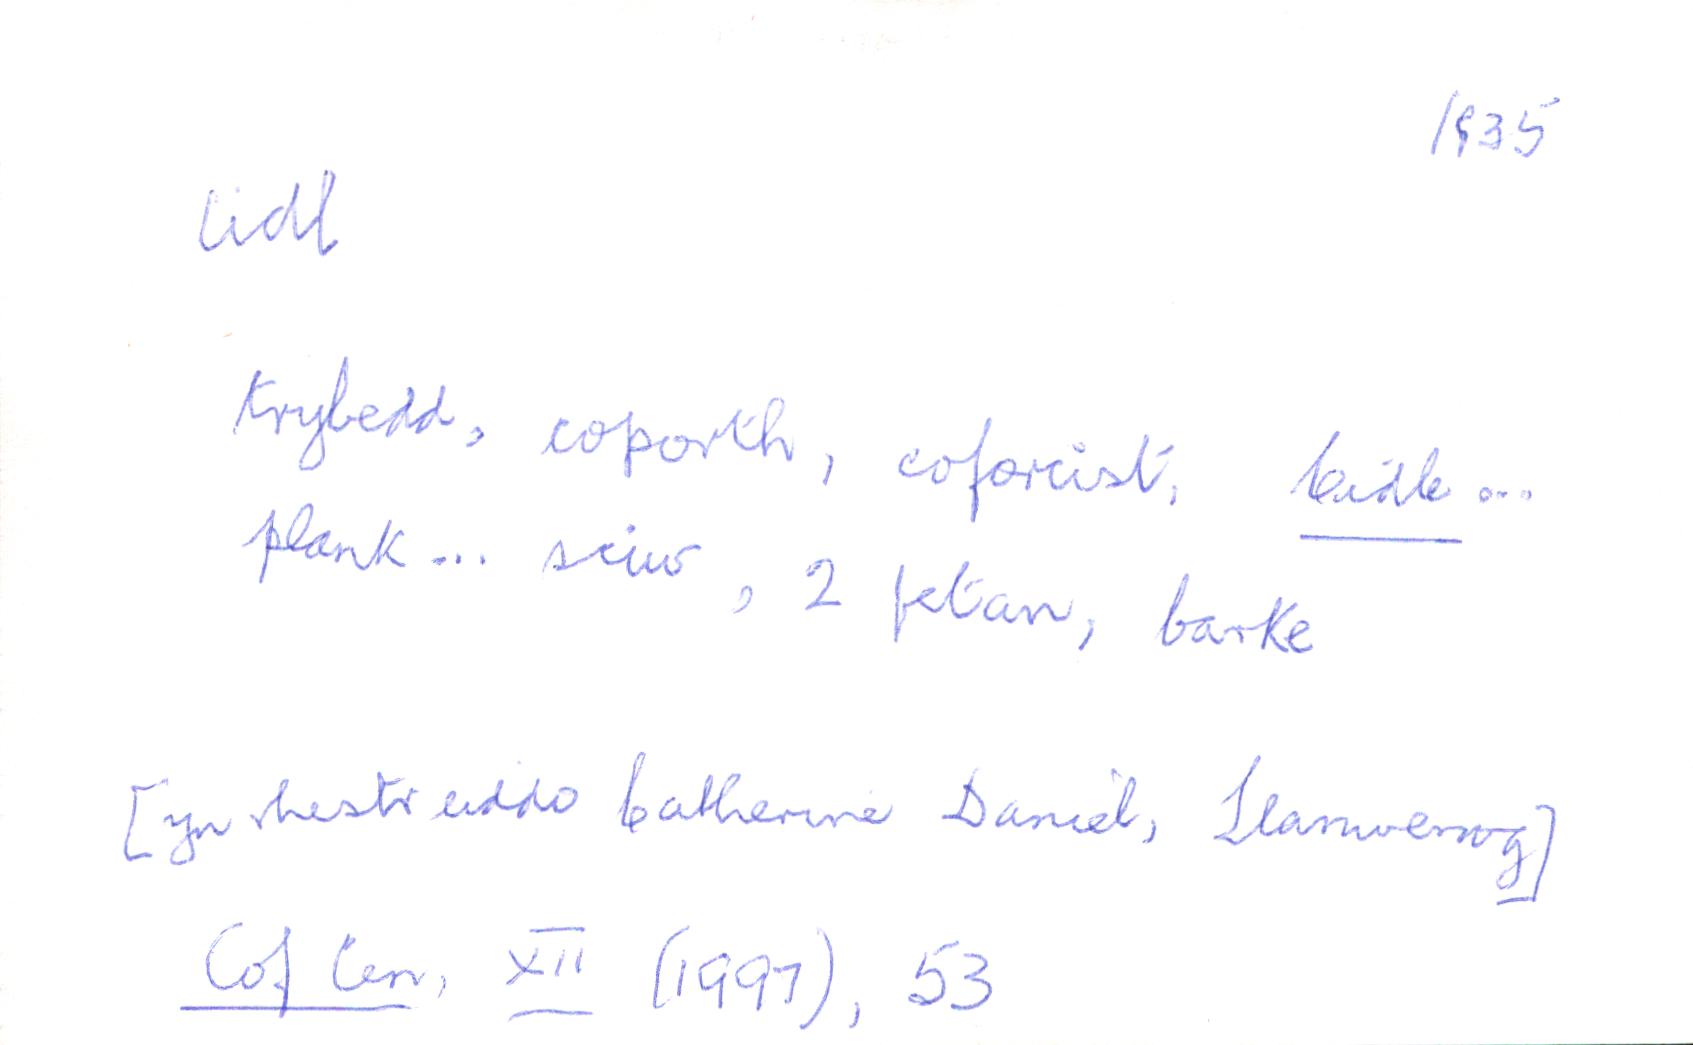 1935
cidl
Krybedd, coporth, coforcist, ceidle ...
plank ... sciw, 2 fetan, barke
[yn rhestr eiddo Catherine Daniel, Llanwenog]
Cof Cen, XII (1997), 53